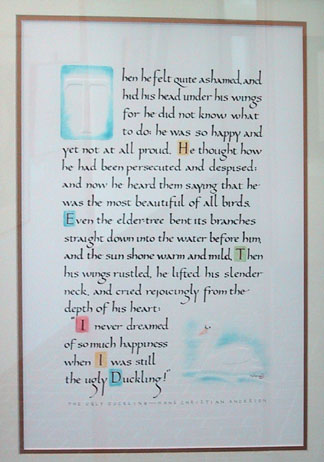 Then he felt quite ashamed, and
hid his head under his wings
for he did not know what
to do; he was so happy and
yet not at all proud. He thought how
he had been persecuted and despised;
and now he heard them saying that he
was the most beautiful of all birds.
Even the elder-tree bent its branches
straight down into the water before him,
and the sun shone warm and mild. Then
his wings rustled, he lifted his slender
neck, and cried rejoicingly from the
depth of his heart:
"I never dreamed
of so much happiness
when I was still
the ugly Duckling!"
THE UGLY DUCKLING—HANS CHRISTIAN ANDERSEN